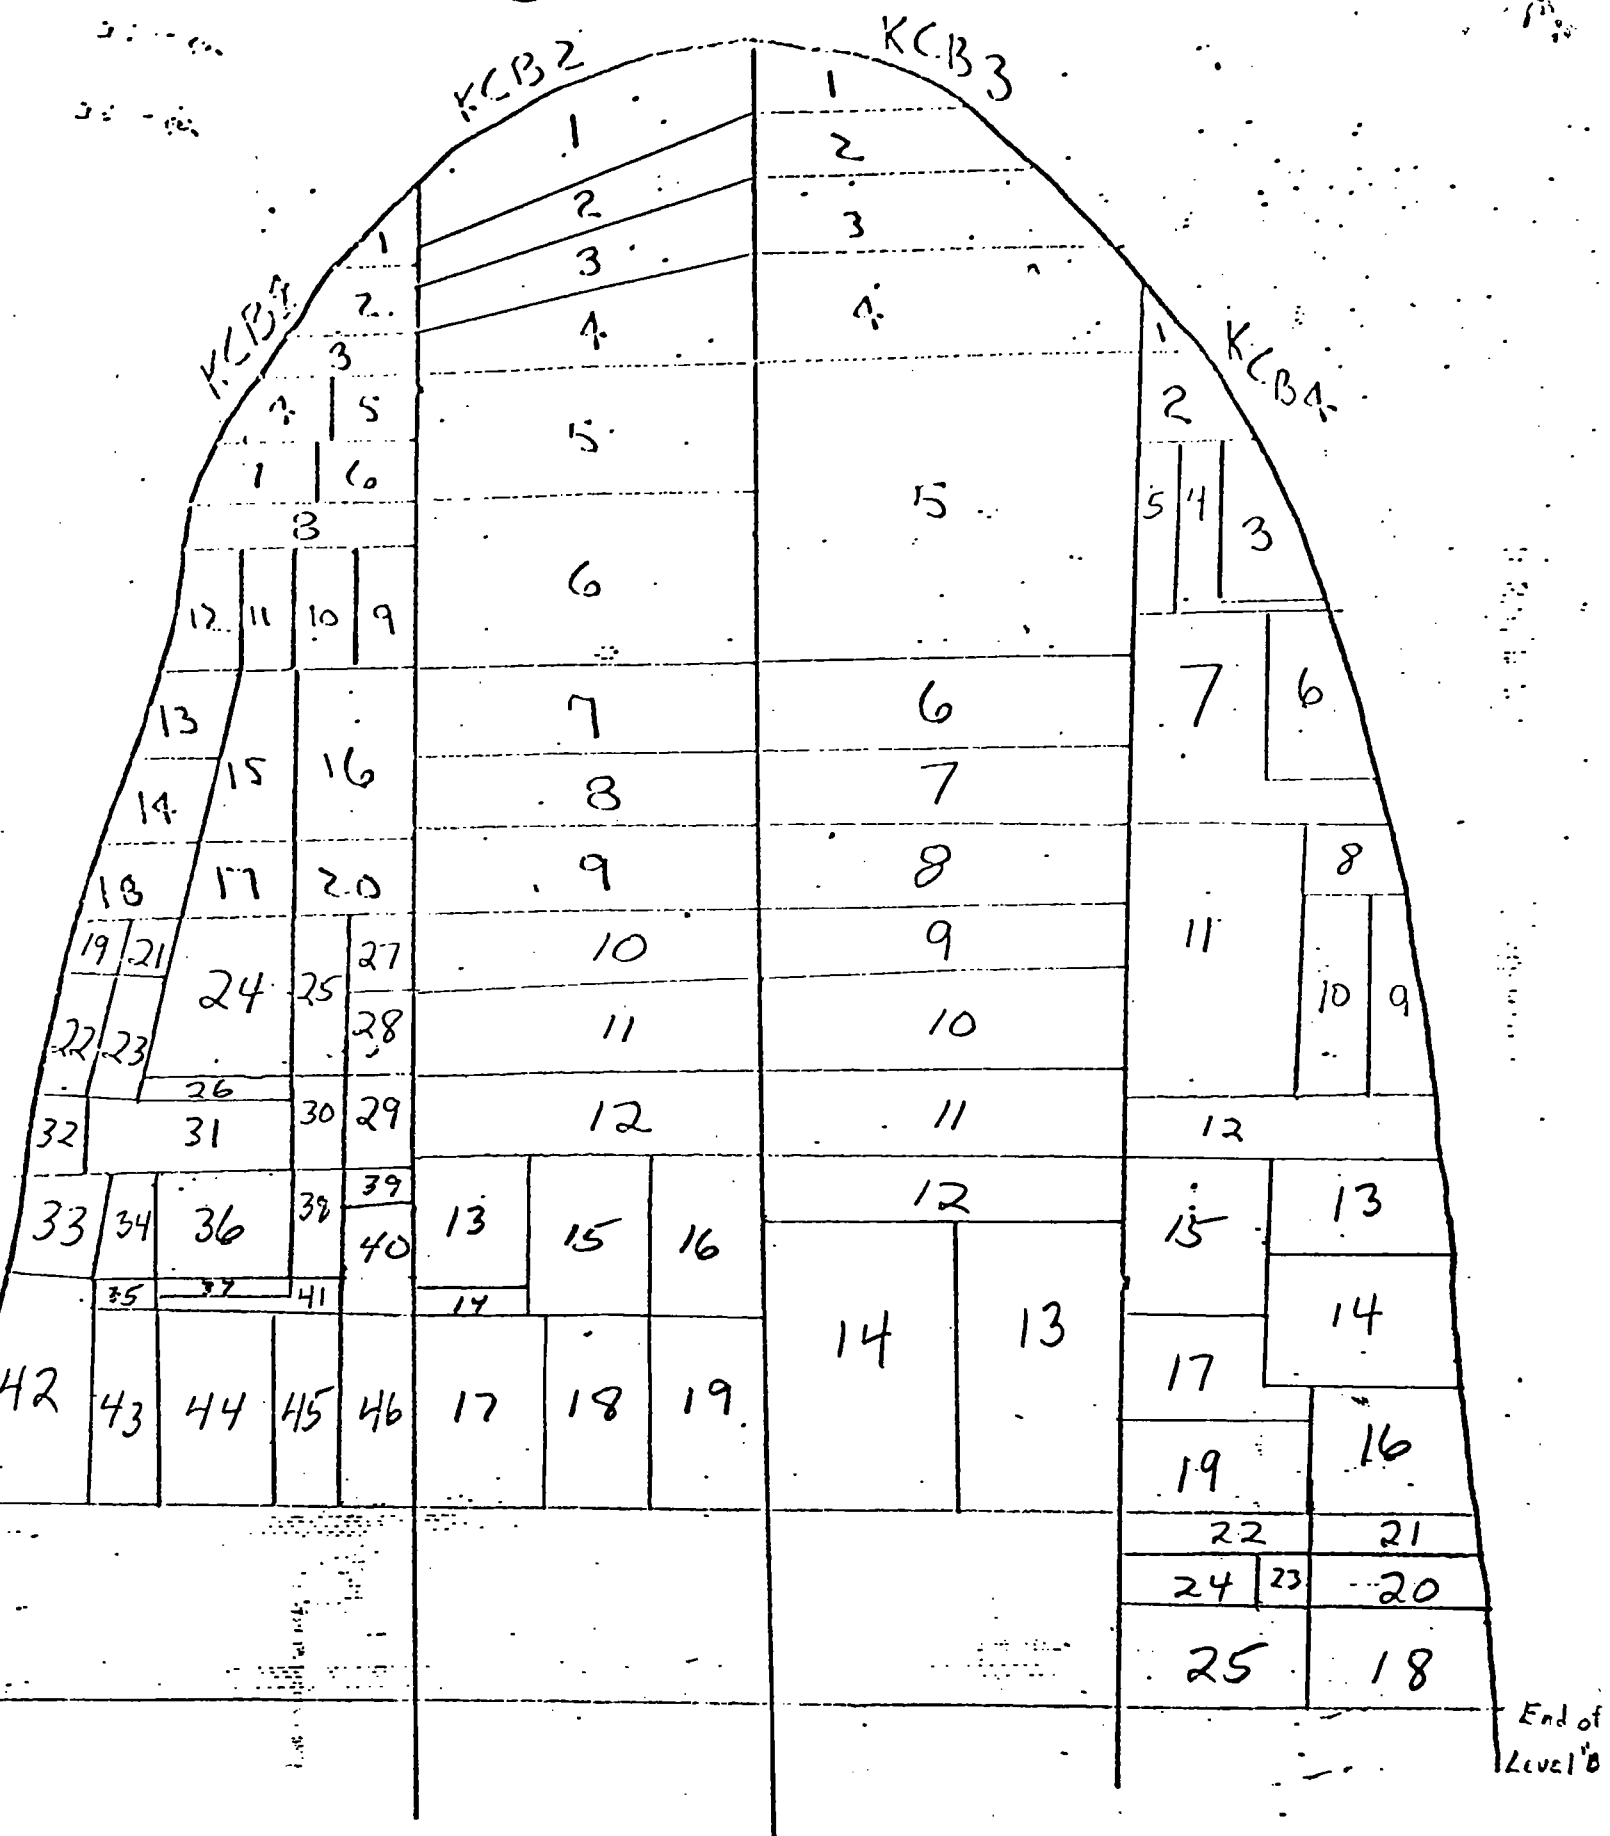 KCB2
KCB3
KCB1
KCB4
1
2
3
4
5
1
6
8
12
11
10
9
13
14
15
16
18
17
20
19
21
24
25
27
22
23
28
26
32
31
30
29
33
34
36
38
39
40
35
37
41
42
43
44
45
46
1
2
3
4
5
6
7
8
9
10
11
12
13
15
16
14
17
18
19
1
2
3
4
5
6
7
8
9
10
11
12
14
13
1
2
5
4
3
7
6
8
11
10
9
12
15
13
14
17
16
19
22
21
24
23
20
25
18
End of
Level "B